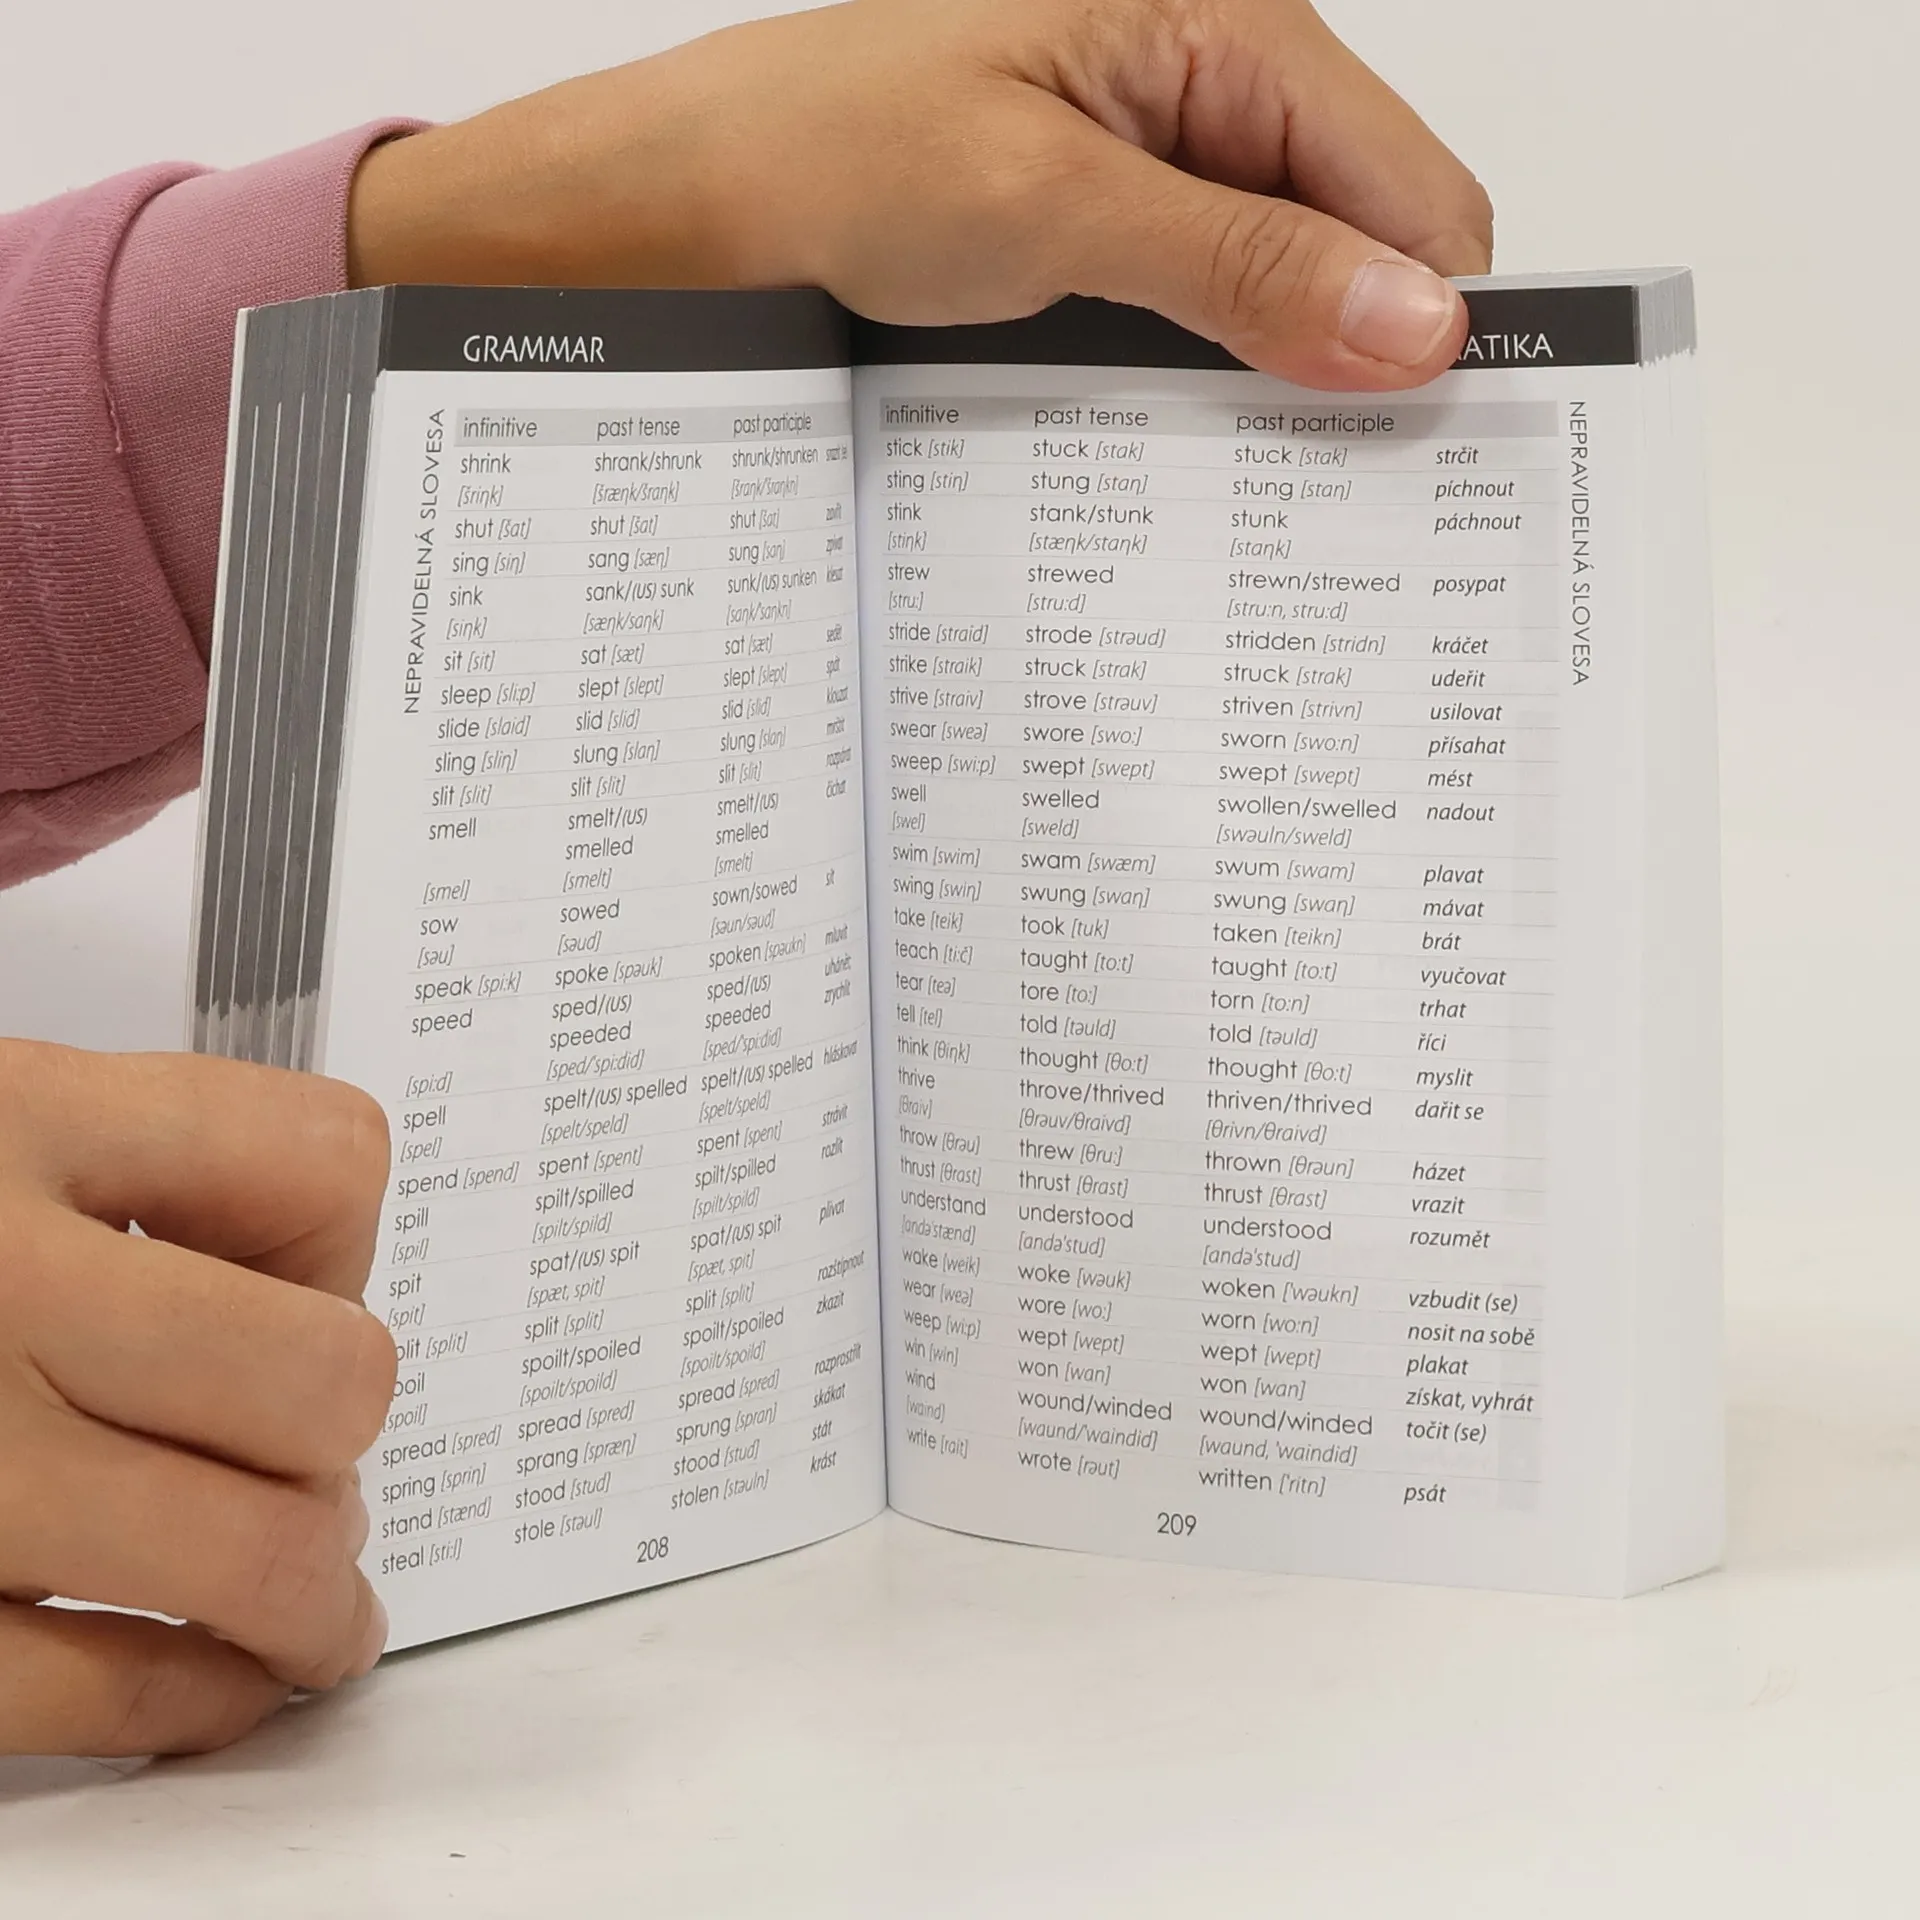 GRAMMAR
NEPRAVIDELNÁ SLOVESA
infinitive past tense past participle
shrink shrank/shrunk shrunk/shrunken
[šriŋk] [šræŋk/šraŋk] [šraŋk/šraŋkn]
shut [šat] shut [šat] shut [šat]
sing [siŋ] sang [sæŋ] sung [saŋ] zpívat
sink sank/(US) sunk sunk/(US) sunken klesat
[siŋk] [sæŋk/saŋk] [saŋk/saŋkn]
sit [sit] sat [sæt] sat [sæt] sedět
sleep [sli:p] slept [slept] slept [slept] spát
slide [slaid] slid [slid] slid [slid] klouzat
sling [sliŋ] slung [slaŋ] slung [slaŋ] mrštit
slit [slit] slit [slit] slit [slit] rozpárat
smell smelt/(US) smelt/(US) čichat
smelled smelled
[smel] [smelt] [smelt]
sow sowed sown/sowed sít
[səu] [səud] [səun/səud]
speak [spi:k] spoke [spəuk] spoken [spəukn] mluvit
speed sped/(US) sped/(US) uhánět
speeded speeded zrychlit
[spi:d] [sped/'spi:did] [sped/'spi:did]
spell spelt/(US) spelled spelt/(US) spelled hláskovat
[spel] [spelt/speld] [spelt/speld]
spend [spend] spent [spent] spent [spent] strávit
spill spilt/spilled spilt/spilled rozlít
[spil] [spilt/spild] [spilt/spild]
spit spat/(US) spit spat/(US) spit plivat
[spit] [spæt, spit] [spæt, spit]
plit [split] split [split] split [split] rozštípnout
poil spoilt/spoiled spoilt/spoiled zkazit
[spoil] [spoilt/spoild] [spoilt/spoild]
spread [spred] spread [spred] spread [spred] rozprostřít
spring [spriŋ] sprang [spræŋ] sprung [spraŋ] skákat
stand [stænd] stood [stud] stood [stud] stát
steal [sti:l] stole [stəul] stolen [stəuln] krást
208
ATIKA
NEPRAVIDELNÁ SLOVESA
infinitive past tense past participle
stick [stik] stuck [stak] stuck [stak] strčit
sting [stiŋ] stung [staŋ] stung [staŋ] píchnout
stink stank/stunk stunk páchnout
[stiŋk] [stæŋk/staŋk] [staŋk]
strew strewed strewn/strewed posypat
[stru:] [stru:d] [stru:n, stru:d]
stride [straid] strode [strəud] stridden [stridn] kráčet
strike [straik] struck [strak] struck [strak] udeřit
strive [straiv] strove [strəuv] striven [strivn] usilovat
swear [sweə] swore [swo:] sworn [swo:n] přísahat
sweep [swi:p] swept [swept] swept [swept] mést
swell swelled swollen/swelled nadout
[swel] [sweld] [swəuln/sweld]
swim [swim] swam [swæm] swum [swam] plavat
swing [swiŋ] swung [swaŋ] swung [swaŋ] mávat
take [teik] took [tuk] taken [teikn] brát
teach [ti:č] taught [to:t] taught [to:t] vyučovat
tear [teə] tore [to:] torn [to:n] trhat
tell [tel] told [təuld] told [təuld] říci
think [θiŋk] thought [θo:t] thought [θo:t] myslit
thrive throve/thrived thriven/thrived dařit se
[θraiv] [θrəuv/θraivd] [θrivn/θraivd]
throw [θrəu] threw [θru:] thrown [θrəun] házet
thrust [θrast] thrust [θrast] thrust [θrast] vrazit
understand understood understood rozumět
[andə'stænd] [andə'stud] [andə'stud]
wake [weik] woke [wəuk] woken ['wəukn] vzbudit (se)
wear [weə] wore [wo:] worn [wo:n] nosit na sobě
weep [wi:p] wept [wept] wept [wept] plakat
win [win] won [wan] won [wan] získat, vyhrát
wind wound/winded wound/winded točit (se)
[waind] [waund/'waindid] [waund, 'waindid]
write [rait] wrote [rəut] written ['ritn] psát
209